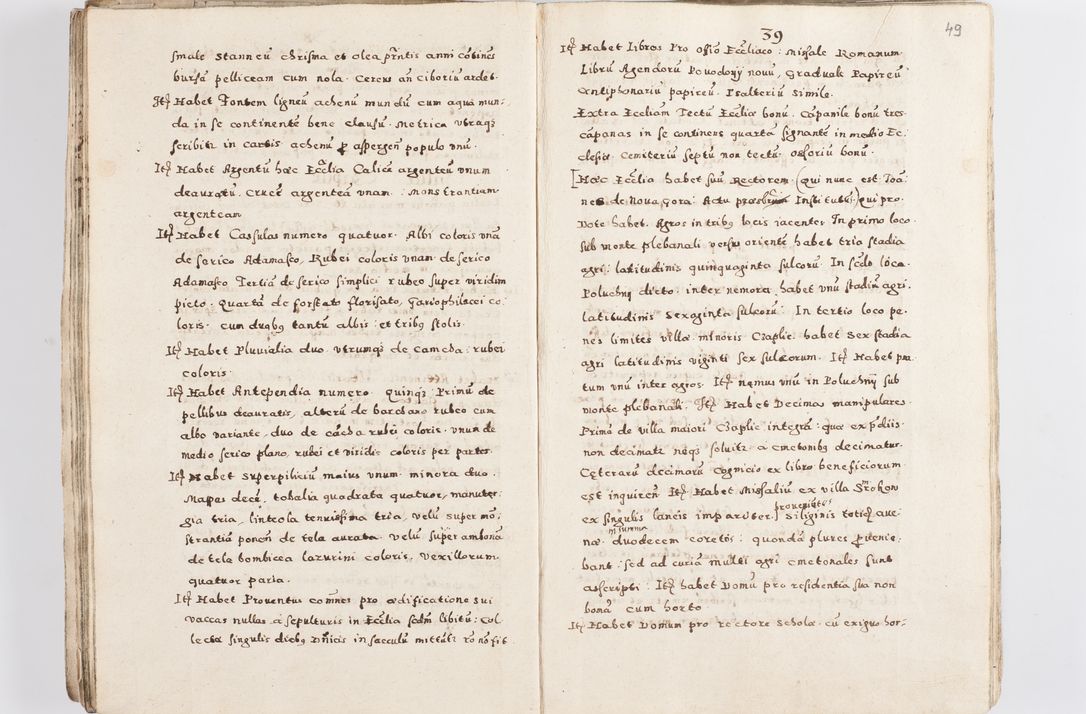 smule stanneũ chrisma et olea pr̃ntis anni cõtinẽs
bursã pelliceam cum nola. Cereus añ ciboriũ ardet.
Itẽ Habet Fontem ligneũ achenũ mundũ cum aqua mun:
da in se continentẽ bene clausũ. Metrica vtraq̃
scribitr in cartis achenũ ꝓ aspergeñ populo vnũ.
Itẽ Habet Argentũ hæc Eccl̃ia Calicẽ argenteũ vnum
deauratũ. Crucẽ argenteã vnam. Monstrantiam
argenteam
Itẽ Habet Cassulas numero quatuor. Albi coloris vnã
de serico Adamasco, Rubei coloris vnam de serico
Adamasco Tertiã de serico simplici rubeo super viridim
picto. Quartã de forstato florisato, gariophilacei co
loris. cum duobus tantũ albis: et tribus stolis.
Itẽ Habet Pluvialia duo. vtrumq̃ de cameha: rubei
coloris.
Itẽ Habet Antependia numero quinq̃ Primũ de
pellibus deauratis, alterũ de barchano rubeo cum
albo variante. duo de cãcha rubei coloris. vnum de
medio serico plano, rubei et viridis coloris per partes.
Itẽ Habet Superpiliciũ maius vnum. minora duo.
Mappas decẽ, tobalia quadrata quatuor, manuter:
gia tria, linteola tenuissima tria, velũ super mõ:
strantiã poneñ de tela aurata. velũ super ambonã
de tela bombicea lazurini coloris, vexillorum
quatuor paria.
Itẽ Habet Prouentus com̃nes pro ædificatione sui
vaccas nullas. a sepulturis in Eccl̃ia scdm libitũ: Col:
lecta singulis diebus Dñicis in sacculũ mittitr rõ nõ fit.
39
49
Itẽ Habet Libros Pro Offõ Eccl̃iaco: Missale Romanum.
Librũ Agendorũ Povodonij nouũ, Graduale Papireũ
Antiphonariũ papireũ. Psalteriũ simile.
Extra Eccl̃iam Tectũ Eccl̃iæ bonũ. Cãpanile bonũ tres
cãpanas in se continens quartã signantẽ in medio Ec.
clesiæ. Cemiteriũ septũ non tectũ. Ossoriũ bonũ.
[Hæc Eccl̃ia habet suũ Rectorem. (qui nunc est Ioã:
nes de Noua gora: Actu præsbiter Institutus) qui pro
Dote habet. Agros in tribus locis iacentes In primo loco.
sub monte plebanali versus orientẽ habet tria stadia
agri: latitudinis quinquaginta sulcorũ. In scd̃o loco.
Poluchnij dicto. inter nemora habet vnũ stadiũ agri.
latitudinis sexaginta sulcorũ: In tertio loco pe.
nes limites villæ minoris Czaplie. habet sex stadia
agri latitudinis viginti sex sulcorum. Itẽ Habet pra
tum vnũ inter agros. Itẽ nemus vnũ in Poluchnij sub
monte plebanali. Itẽ Habet Decimas manipulares.
Primã de villa maiori Czaplie integrã: quæ ex p̃dijs
non decimatr neq̃ soluitr a cmetonibus decimatur.
Cęterarũ decimarũ cognicio ex libro beneficiorum
est inquireñ. Itẽ Habet Missaliũ ex villa Strokow
ex singulis laneis impariter.] prouenientes Siliginis totidẽ aue:
næ in summa duodecem coretos: quondã plures ꝓuenie:
bant: sed ad curiã multi agri cmetonales sunt
asscripti: Itẽ habet Domũ pro residentia sua non
bonã cum horto
Itẽ Habet Domum pro rectore scholæ. cũ exiguo hor: